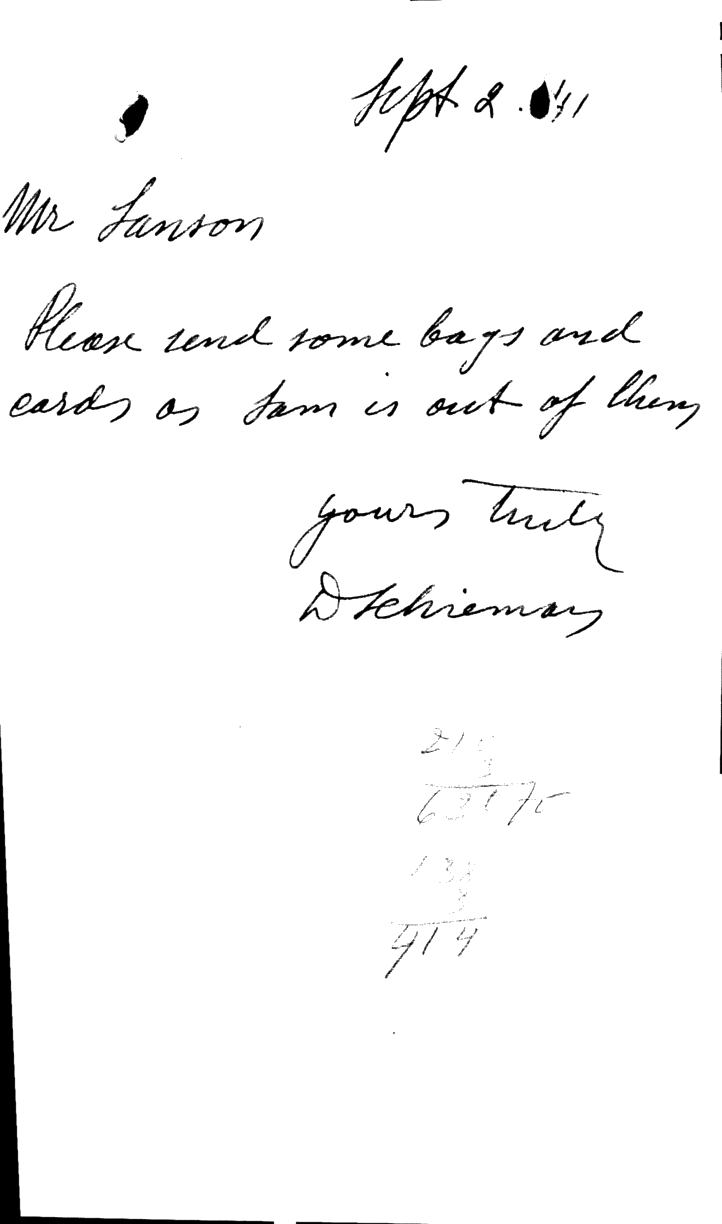 Sept 2.
Mr Lanson
Please send some bags and
cards as Sam is out of them
yours truly
D Schieman
3
138
3
414